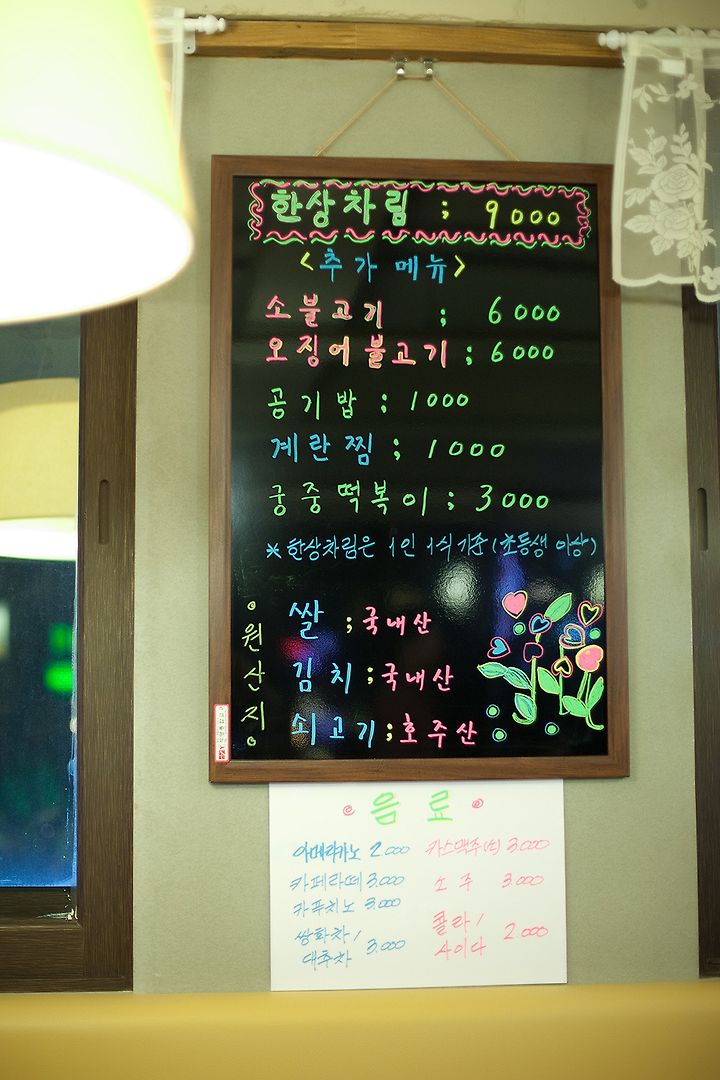 한상차림 ; 9000
<추가 메뉴>
소불고기 ; 6000
오징어불고기 ; 6000
공기밥 ; 1000
계란찜 ; 1000
궁중떡복이 ; 3000
※ 한상차림은 1인 1식 기준 (초등생 이상)
원산지
쌀 ; 국내산
김치 ; 국내산
쇠고기 ; 호주산
음료
아메리카노 2.000
카페라떼 3.000
카푸치노 3.000
쌍화차/
대추차 3.000
카스맥주(小) 3.000
소주 3.000
콜라/
사이다 2.000